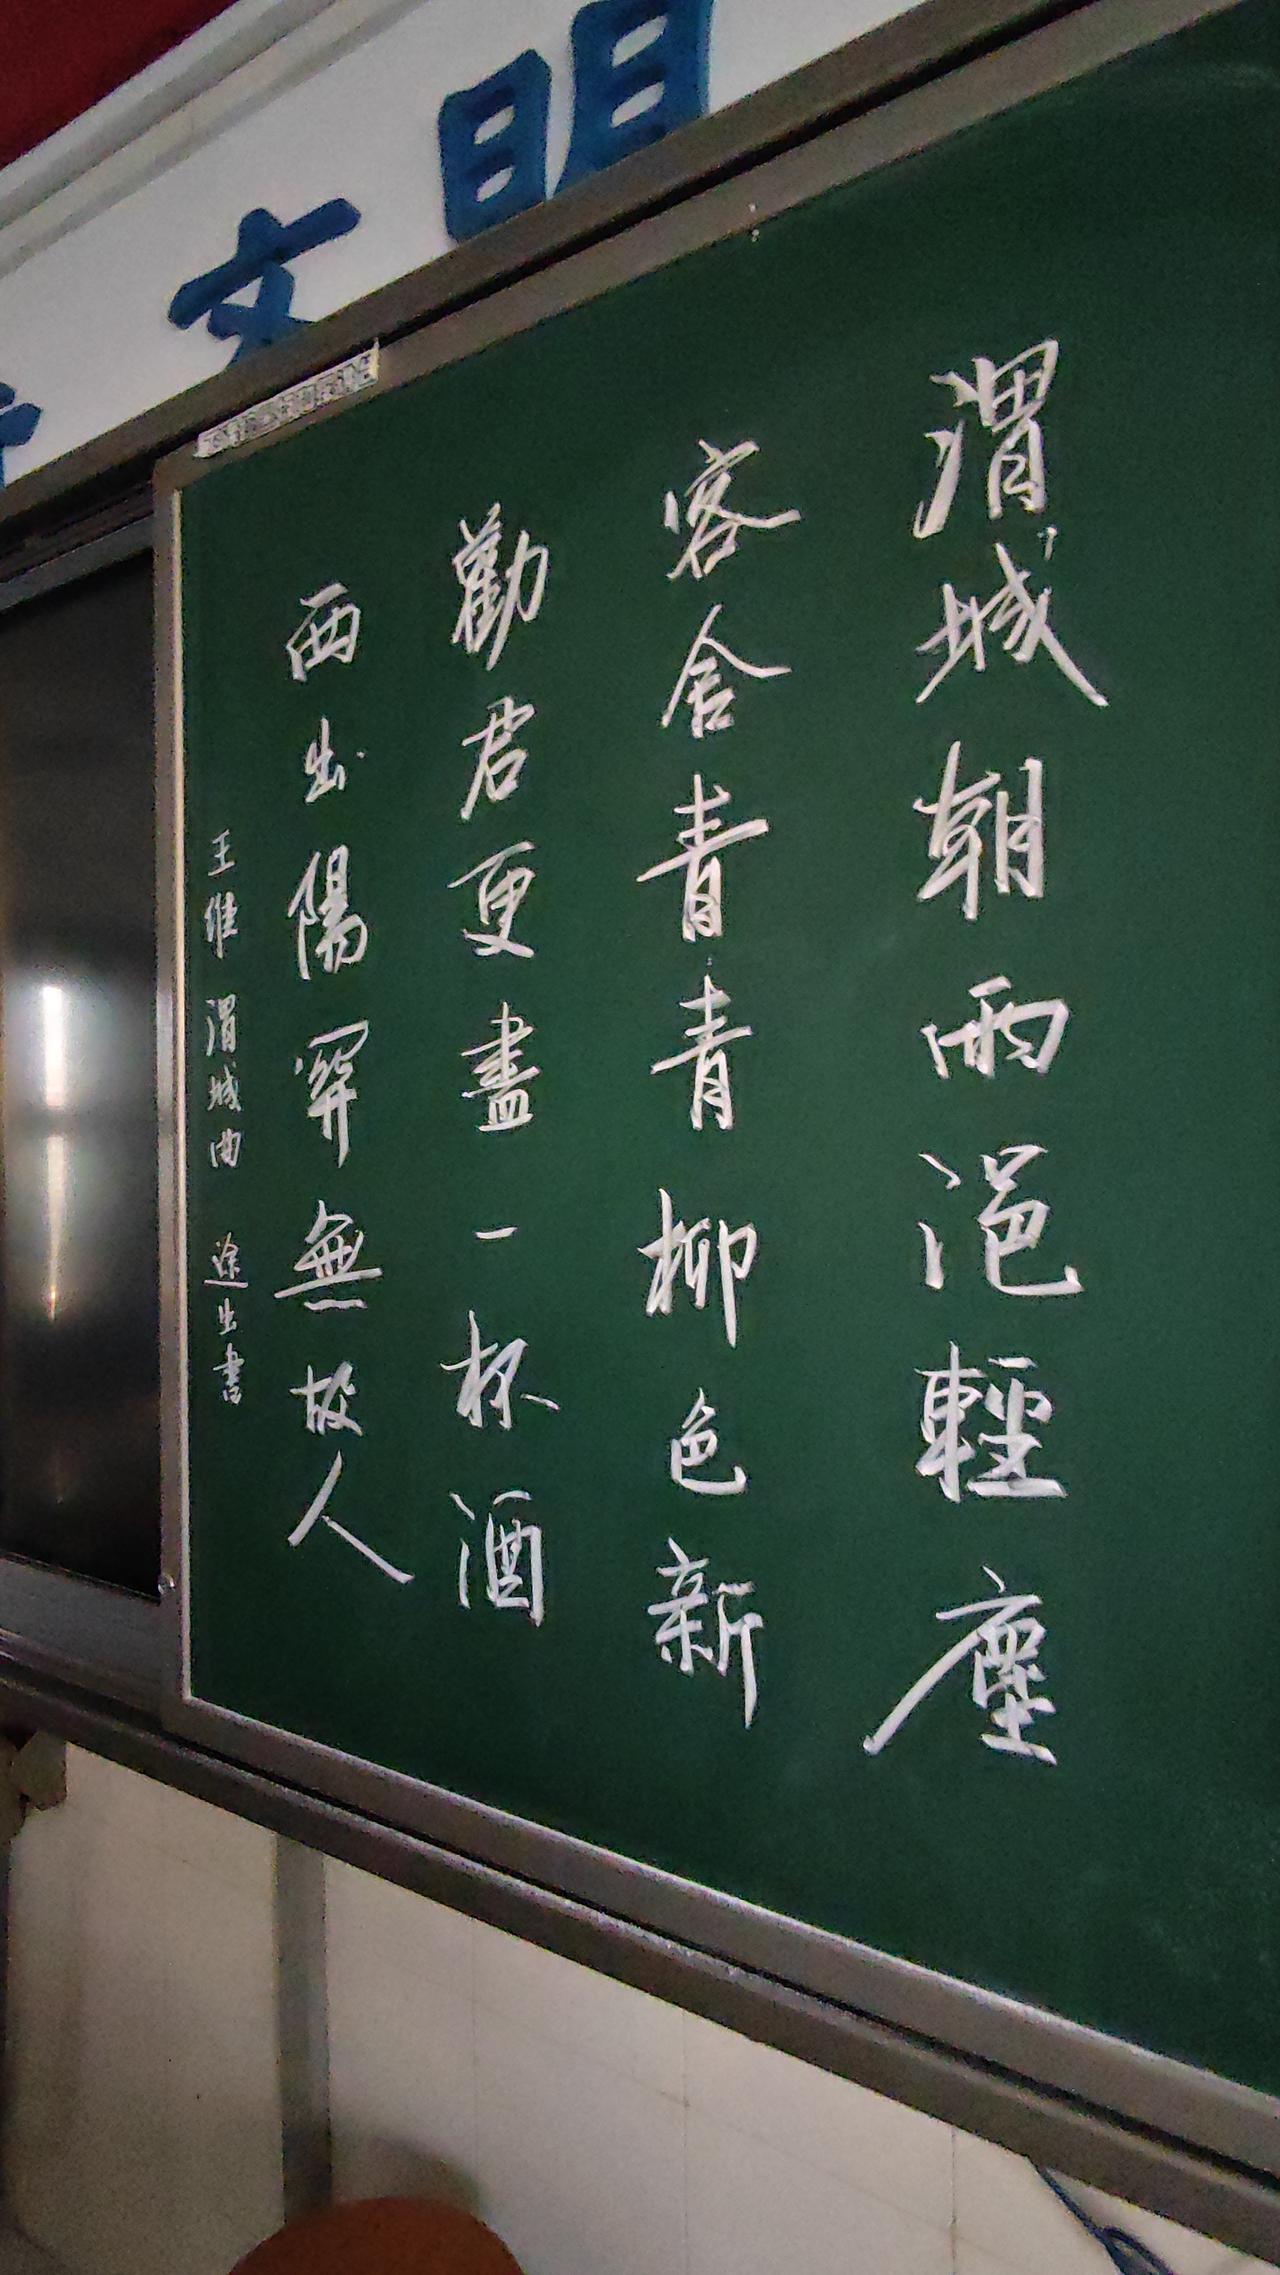 文明
渭城朝雨浥輕塵
客舍青青柳色新
勸君更盡一杯酒
西出陽関無故人
王維 渭城曲 途生書